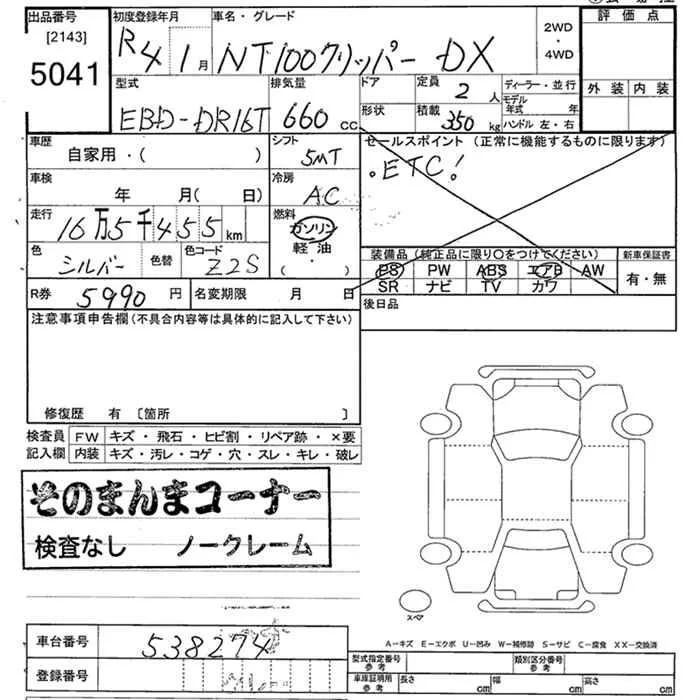 出品番号
[2143]
5041
初度登録年月
R4 1月
車名・グレード
NT100クリッパー DX
2WD
・
4WD
評価点
外装 内装
型式
EBD-DR16T
排気量
660 cc
ドア
形状
定員
2 人
積載
350 kg
ディーラー・並行
モデル年式 年
ハンドル 左・右
車歴
自家用・( )
シフト
5MT
セールスポイント (正常に機能するものに限ります)
・ETC!
車検
年 月( 日)
冷房
AC
走行
16万5千455 km
燃料
ガソリン
軽油
・( )
色
シルバー
色替
色コード
Z2S
装備品 (純正品に限り〇をつけてください)
PS PW ABS エアB AW
SR ナビ TV カワ
新車保証書
有・無
R券
5990 円
名変期限 月 日
後日品
注意事項申告欄(不具合内容等は具体的に記入して下さい)
修復歴 有 [箇所 ]
検査員 FW キズ・飛石・ヒビ割・リペア跡・×要
記入欄 内装 キズ・汚レ・コゲ・穴・スレ・キレ・破レ
そのまんまコーナー
検査なし ノークレーム
スペア
A-キズ E-エクボ U-凹み W-補修跡 S-サビ C-腐食 XX-交換済
車台番号
538274
登録番号
型式指定番号
参考
類別区分番号
参考
車庫証明用
参考
長さ cm 幅 cm 高さ cm